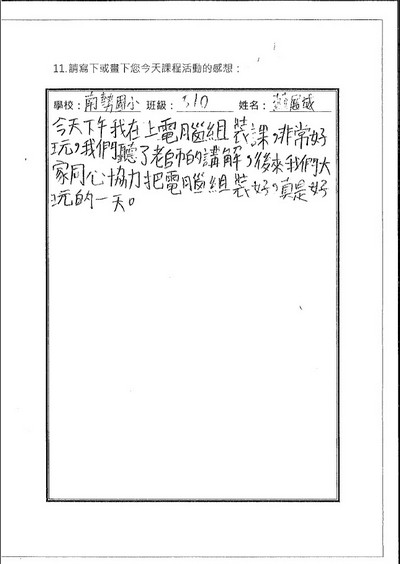 11.請寫下或畫下您今天課程活動的感想：
學校：南勢國小 班級：510 姓名：
今天下午我在上電腦組裝課，非常好
玩，我們聽了老師的講解，後來我們大
家同心協力把電腦組裝好，真是好
玩的一天。